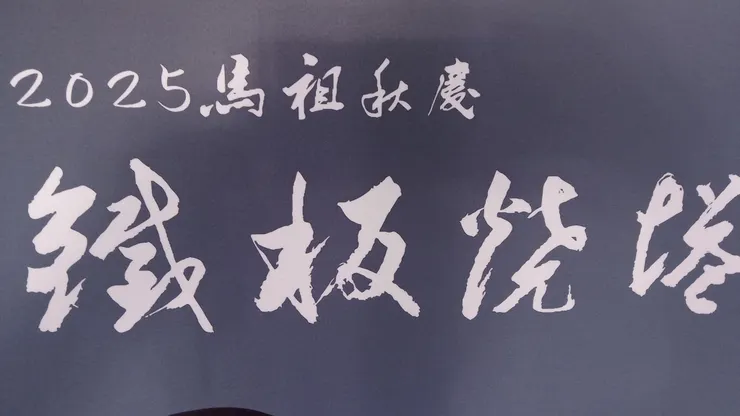 2025馬祖秋慶
鐵板燒塔